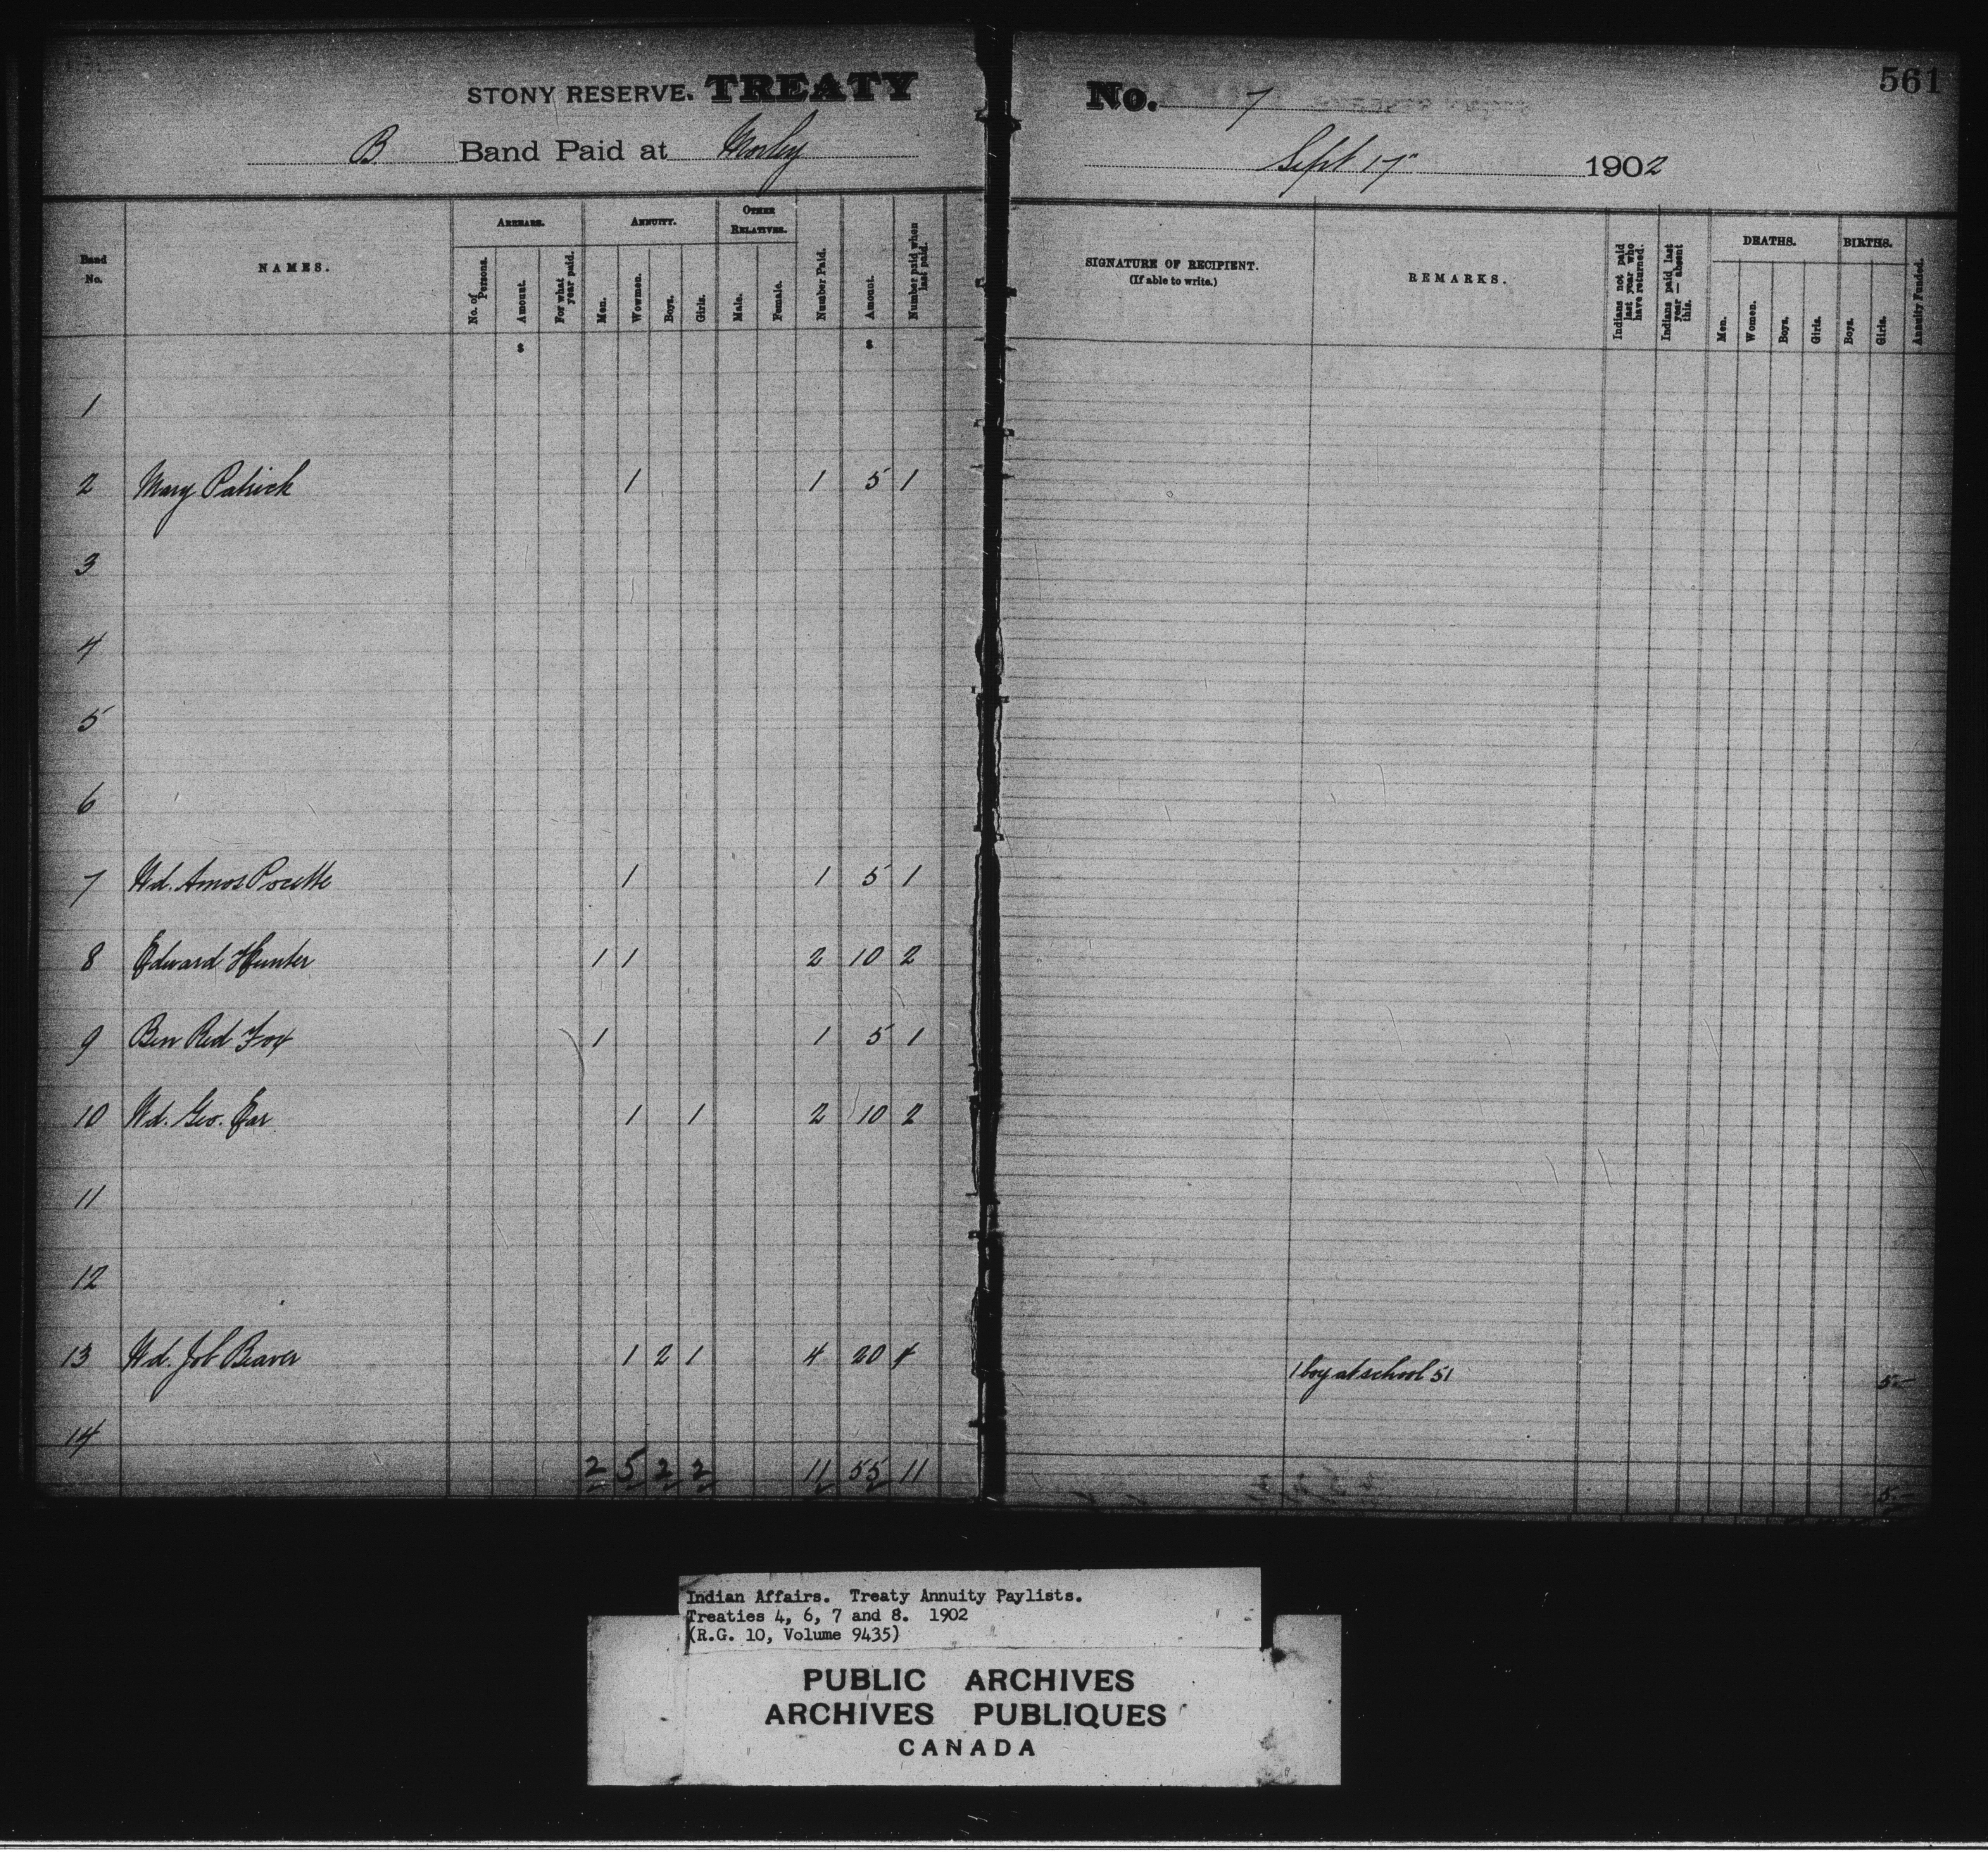 STONY RESERVE. TREATY
B Band Paid at Morley
Band No.
NAMES.
ARREARS.
No. of Persons.
Amount.
For what year paid.
ANNUITY.
Men.
Wowmen.
Boys.
Girls.
OTHER RELATIVES.
Male.
Female.
Number Paid.
Amount.
Number paid when last paid.
$ $
1
2 Mary Patrick 1 1 5 1
3
4
5
6
7 Wd. Amos Pocette 1 1 5 1
8 Edward Hunter 1 1 2 10 2
9 Ben Red Fox 1 1 5 1
10 Wd. Geo. Ear 1 1 2 10 2
11
12
13 Wd. Job Beaver 1 2 1 4 20 4
14
2 5 2 2 11 55 11
561
No. 7
Sept 17" 1902
SIGNATURE OF RECIPIENT.
(If able to write.)
REMARKS.
Indians not paid last year who have returned.
Indians paid last year — absent this.
DEATHS.
Men.
Women.
Boys.
Girls.
BIRTHS.
Boys.
Girls.
Annuity Funded.
1 boy at school 51 5-
5-
Indian Affairs. Treaty Annuity Paylists.
Treaties 4, 6, 7 and 8. 1902
(R.G. 10, Volume 9435)
PUBLIC ARCHIVES
ARCHIVES PUBLIQUES
CANADA